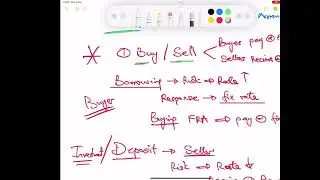 ① Buy / Sell
Buyer pay
Seller Recive
Borrowing → Risk ⇒ Rate ↑
Buyer
Response → fix rate
Buying FRA ⇒ pay
Investment / Deposit → Seller
Risk → Rate ↓